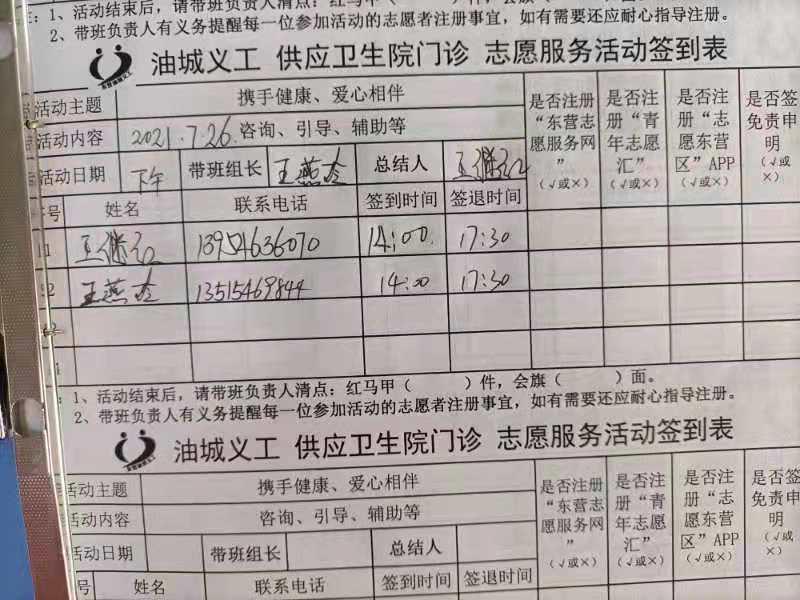 1、活动结束后，请带班负责人清点：红马甲（　　）件，会旗（　　）面。
2、带班负责人有义务提醒每一位参加活动的志愿者注册事宜，如有需要还应耐心指导注册。
油城义工 供应卫生院门诊 志愿服务活动签到表
活动主题 携手健康、爱心相伴 是否注册“东营志愿服务网”（√或×） 是否注册“青年志愿汇”（√或×） 是否注册“志愿东营区”APP（√或×） 是否签免责申明（√或×）
活动内容 2021.7.26 咨询、引导、辅助等
活动日期 下午 带班组长 王燕 总结人 王继
号 姓名 联系电话 签到时间 签退时间
1 王继 13954636070 14:00 17:30
2 王燕 13515469844 14:00 17:30
1、活动结束后，请带班负责人清点：红马甲（　　）件，会旗（　　）面。
2、带班负责人有义务提醒每一位参加活动的志愿者注册事宜，如有需要还应耐心指导注册。
油城义工 供应卫生院门诊 志愿服务活动签到表
活动主题 携手健康、爱心相伴 是否注册“东营志愿服务网”（√或×） 是否注册“青年志愿汇”（√或×） 是否注册“志愿东营区”APP（√或×） 是否签免责申明（√或×）
活动内容 咨询、引导、辅助等
活动日期 带班组长 总结人
号 姓名 联系电话 签到时间 签退时间